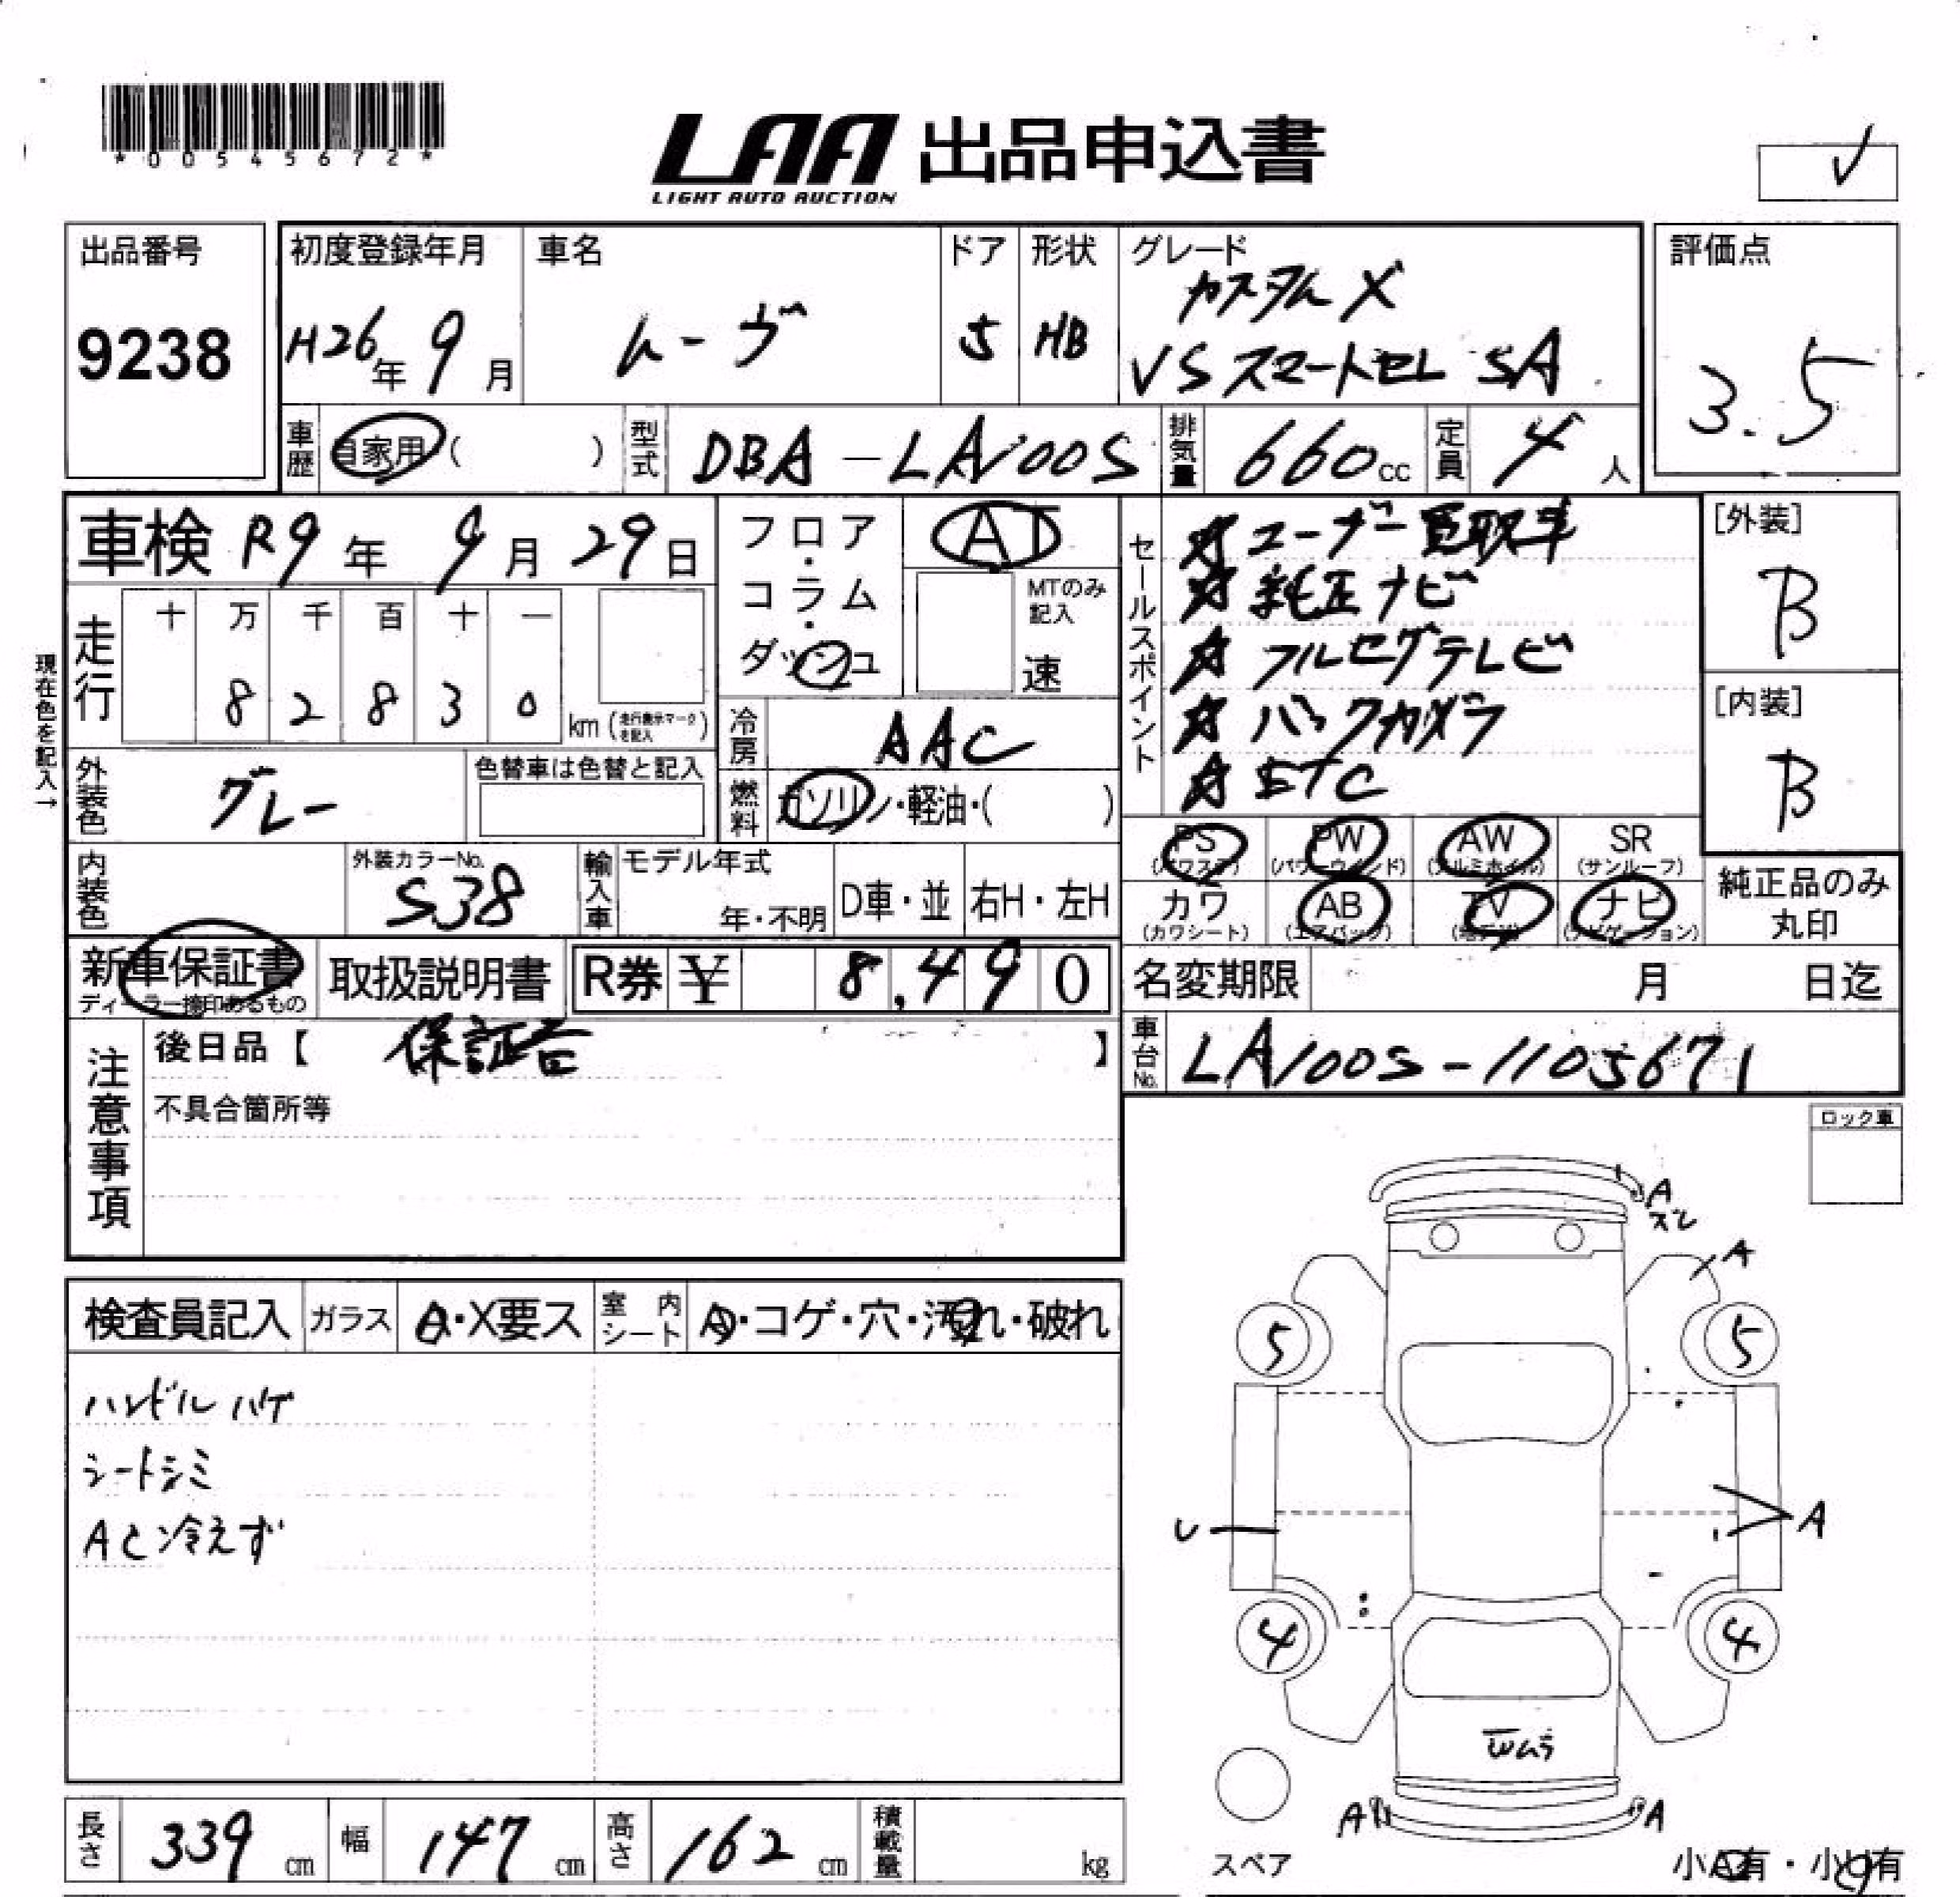 *00545672*
LAA 出品申込書
LIGHT AUTO AUCTION
出品番号
9238
初度登録年月
H26年 9月
車名
ムーヴ
ドア
5
形状
HB
グレード
カスタム X
VS スマートセレ SA
評価点
3.5
車歴 自家用 ( )
型式 DBA-LA100S
排気量 660cc
定員 4人
車検 R9年 9月 29日
現在色を記入→
走行
十 万 千 百 十 一
8 2 8 3 0 km (走行表示マークを記入)
フロア・コラム・ダッシュ
AT
MTのみ記入
速
セールスポイント
☆ユーザー買取車
☆純正ナビ
☆フルセグテレビ
☆バックカメラ
☆ETC
[外装]
B
[内装]
B
冷房 AAC
燃料 ガソリン・軽油・( )
外装色 グレー
色替車は色替と記入
内装色
外装カラーNo.
S38
輸入車
モデル年式
年・不明
D車・並
右H・左H
PS
(パワステ)
PW
(パワーウインド)
AW
(アルミホイル)
SR
(サンルーフ)
カワ
(カワシート)
AB
(エアバッグ)
TV
(地デジ)
ナビ
(ナビゲーション)
純正品のみ
丸印
新車保証書
ディーラー捺印あるもの
取扱説明書
R券 ¥ 8,490
名変期限 月 日迄
車台No. LA100S-1105671
注意事項
後日品【 保証書 】
不具合箇所等
ロック車
検査員記入
ガラス A・X要ス
室内シート A・コゲ・穴・汚れ・破れ
ハンドルハゲ
シートシミ
AC冷えず
A
ズレ
A
5
5
U
A
4
4
Wムラ
A
A
スペア
小A有・小U有
長さ 339cm
幅 147cm
高さ 162cm
積載量 kg